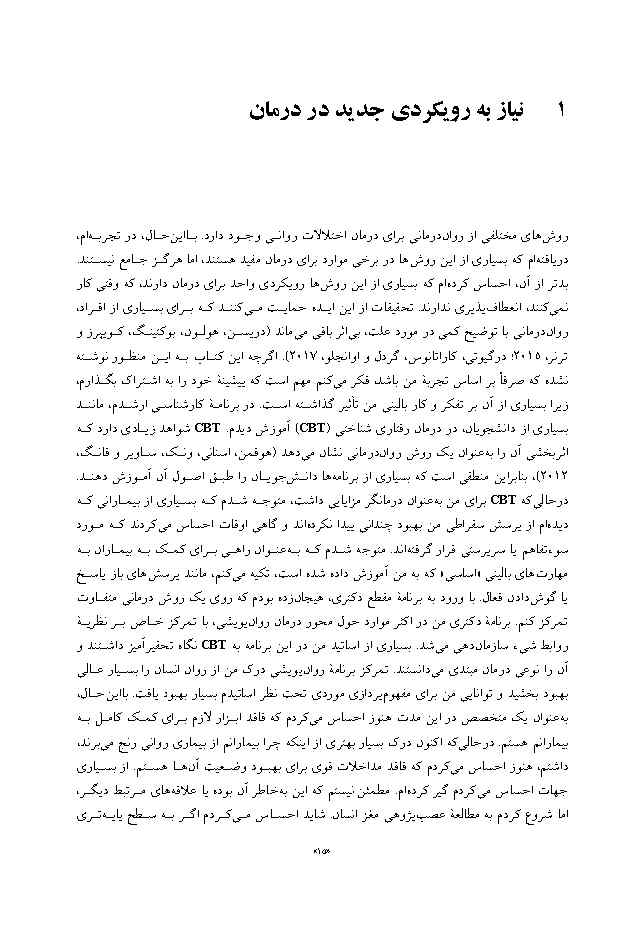 ۱ نیاز به رویکردی جدید در درمان
روش‌های مختلفی از روان‌درمانی برای درمان اختلالات روانی وجود دارد. بااین‌حال، در تجربه‌ام،
دریافته‌ام که بسیاری از این روش‌ها در برخی موارد برای درمان مفید هستند، اما هرگز جامع نیستند.
بدتر از آن، احساس کرده‌ام که بسیاری از این روش‌ها رویکردی واحد برای درمان دارند، که وقتی کار
نمی‌کنند، انعطاف‌پذیری ندارند. تحقیقات از این ایده حمایت می‌کنند که برای بسیاری از افراد،
روان‌درمانی با توضیح کمی در مورد علت، بی‌اثر باقی می‌ماند (دریسن، هولون، بکتینگ، کویپرز و
ترنر، ۲۰۱۵؛ درگیوتی، کاراتانوس، گردل و اوانجلو، ۲۰۱۷). اگرچه این کتاب به این منظور نوشته
نشده که صرفاً بر اساس تجربهٔ من باشد، فکر می‌کنم مهم است که پیشینهٔ خود را به اشتراک بگذارم،
زیرا بسیاری از آن بر تفکر و کار بالینی من تأثیر گذاشته است. در برنامهٔ کارشناسی ارشدم، مانند
بسیاری از دانشجویان در درمان رفتاری شناختی (CBT) آموزش دیدم. CBT شواهد زیادی دارد کـه
اثربخشی آن را به‌عنوان یک روش روان‌درمانی نشان می‌دهد (هوفمن، اسنانی، ونک، ساویر و فانگ،
۲۰۱۲)، بنابراین منطقی است که بسیاری از برنامه‌ها دانشجویان را طبق اصول آن آموزش دهند.
درحالی‌که CBT برای من به‌عنوان درمانگر مزایایی داشت، متوجه شدم که بسیاری از بیمارانی که
دیده‌ام از پرسش سقراطی من بهبود چندانی پیدا نکرده‌اند و گاهی اوقات احساس می‌کردند که مورد
سوءتفاهم یا پرسترسی قرار گرفته‌اند. متوجه شدم که به‌عنوان راهی برای کمک به بیماران به
مهارت‌های بالینی «اساسی» که به من آموزش داده شده است، تکیه می‌کنم، مانند پرسش‌های باز پاسخ
یا گوش‌دادن فعال. با ورود به برنامهٔ مقطع دکتری، هیجان‌زده بودم که روی یک روش درمانی متفاوت
تمرکز کنم. برنامهٔ دکتری من در اکثر موارد لوح محور درمان روان‌پویشی، با تمرکز خاص بر نظریهٔ
روابط شیء سازمان‌دهی می‌شد. بسیاری از اساتید من در این برنامه به CBT نگاه تحقیرآمیز داشتند و
آن را نوعی درمان مبتدی می‌دانستند. تمرکز برنامهٔ روان‌پویشی کرد من از روان انسان را بسیار عالی
بهبود بخشید و توانایی من برای مفهوم‌پردازی موردی تحت نظر اساتیدم بسیار بهبود یافت. بااین‌حال،
به‌عنوان یک متخصص در این مدت هنوز احساس می‌کردم که فاقد ابزار لازم برای کمک کامل به
بیمارانم هستم. درحالی‌که اکنون درک بسیار بهتری از اینکه چرا بیمارانم از بیماری روانی رنج می‌برند،
داشتم، هنوز احساس می‌کردم که فاقد مداخلات قوی برای بهبود وضعیت آن‌ها هستم. از بسیاری
جهات احساس می‌کردم گیر کرده‌ام. مطمئن نیستم که این به‌خاطر آن بوده یا علاقه‌های مرتبط دیگر،
اما شروع کردم به مطالعهٔ عصب‌پژوهی مغز انسان. شاید احساس می‌کردم اگر به سطح پایه‌ای‌تری
«۱۵»